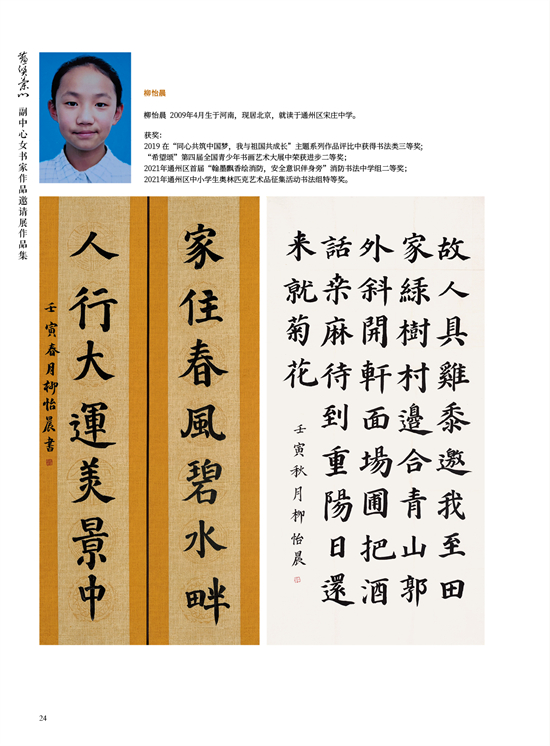 艺贤荟 副中心女书家作品邀请展作品集
柳怡晨
柳怡晨 2009年4月生于河南，现居北京，就读于通州区宋庄中学。
获奖：
2019 在“同心共筑中国梦，我与祖国共成长”主题系列作品评比中获得书法类三等奖；
“希望颂”第四届全国青少年书画艺术大展中荣获进步二等奖；
2021年通州区首届“翰墨飘香绘消防，安全意识伴身旁”消防书法中学组二等奖；
2021年通州区中小学生奥林匹克艺术品征集活动书法组特等奖。
家住春風碧水畔
人行大運美景中
壬寅春月柳怡晨書
故人具雞黍邀我至田
家緑樹村邊合青山郭
外斜開軒面場圃把酒
話桒麻待到重陽日還
来就菊花
壬寅秋月柳怡晨
24